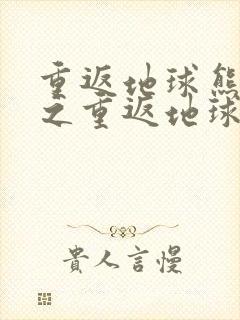 重返地球熊
之重返地球
貴人言慢